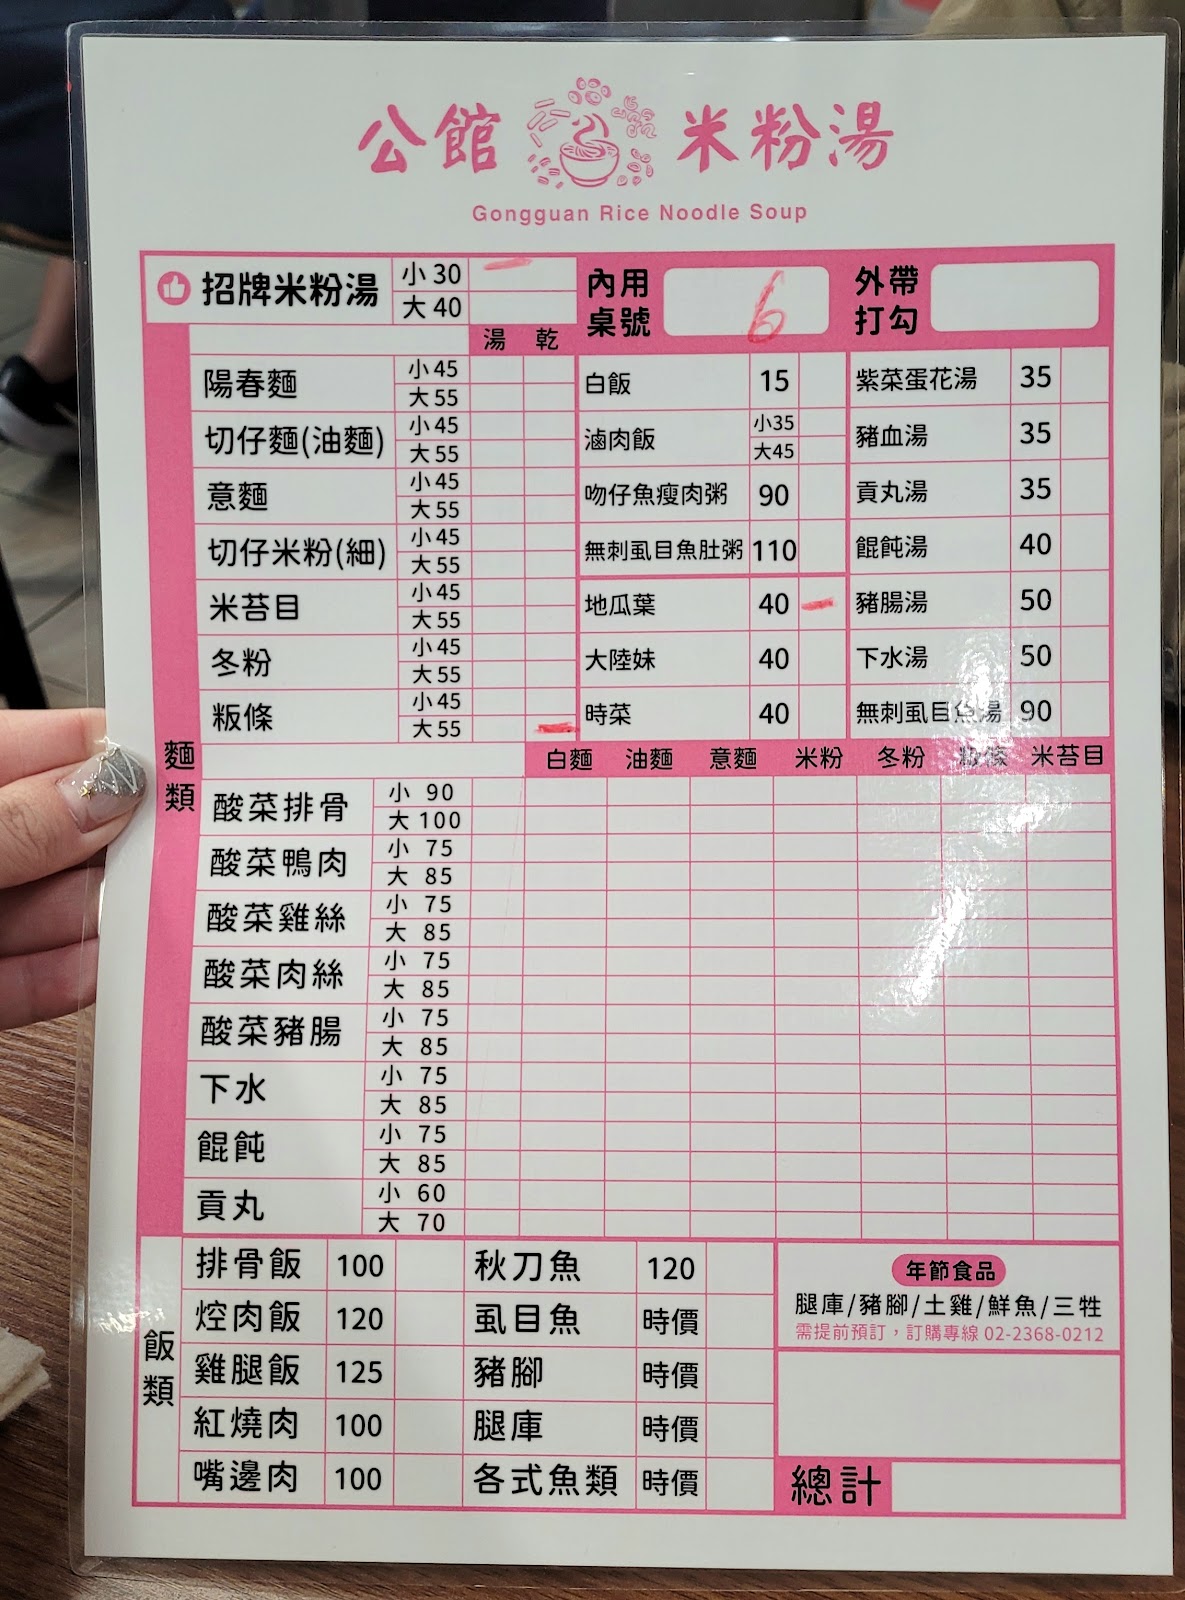 公館 米粉湯
Gongguan Rice Noodle Soup
招牌米粉湯 小 30
大 40
內用桌號 6
外帶打勾
湯 乾
麵類
陽春麵 小 45
大 55
切仔麵(油麵) 小 45
大 55
意麵 小 45
大 55
切仔米粉(細) 小 45
大 55
米苔目 小 45
大 55
冬粉 小 45
大 55
粄條 小 45
大 55
白飯 15
滷肉飯 小35
大45
吻仔魚瘦肉粥 90
無刺虱目魚肚粥 110
地瓜葉 40
大陸妹 40
時菜 40
紫菜蛋花湯 35
豬血湯 35
貢丸湯 35
餛飩湯 40
豬腸湯 50
下水湯 50
無刺虱目魚湯 90
白麵 油麵 意麵 米粉 冬粉 粄條 米苔目
酸菜排骨 小 90
大 100
酸菜鴨肉 小 75
大 85
酸菜雞絲 小 75
大 85
酸菜肉絲 小 75
大 85
酸菜豬腸 小 75
大 85
下水 小 75
大 85
餛飩 小 75
大 85
貢丸 小 60
大 70
飯類
排骨飯 100
焢肉飯 120
雞腿飯 125
紅燒肉 100
嘴邊肉 100
秋刀魚 120
虱目魚 時價
豬腳 時價
腿庫 時價
各式魚類 時價
年節食品
腿庫/豬腳/土雞/鮮魚/三牲
需提前預訂，訂購專線 02-2368-0212
總計